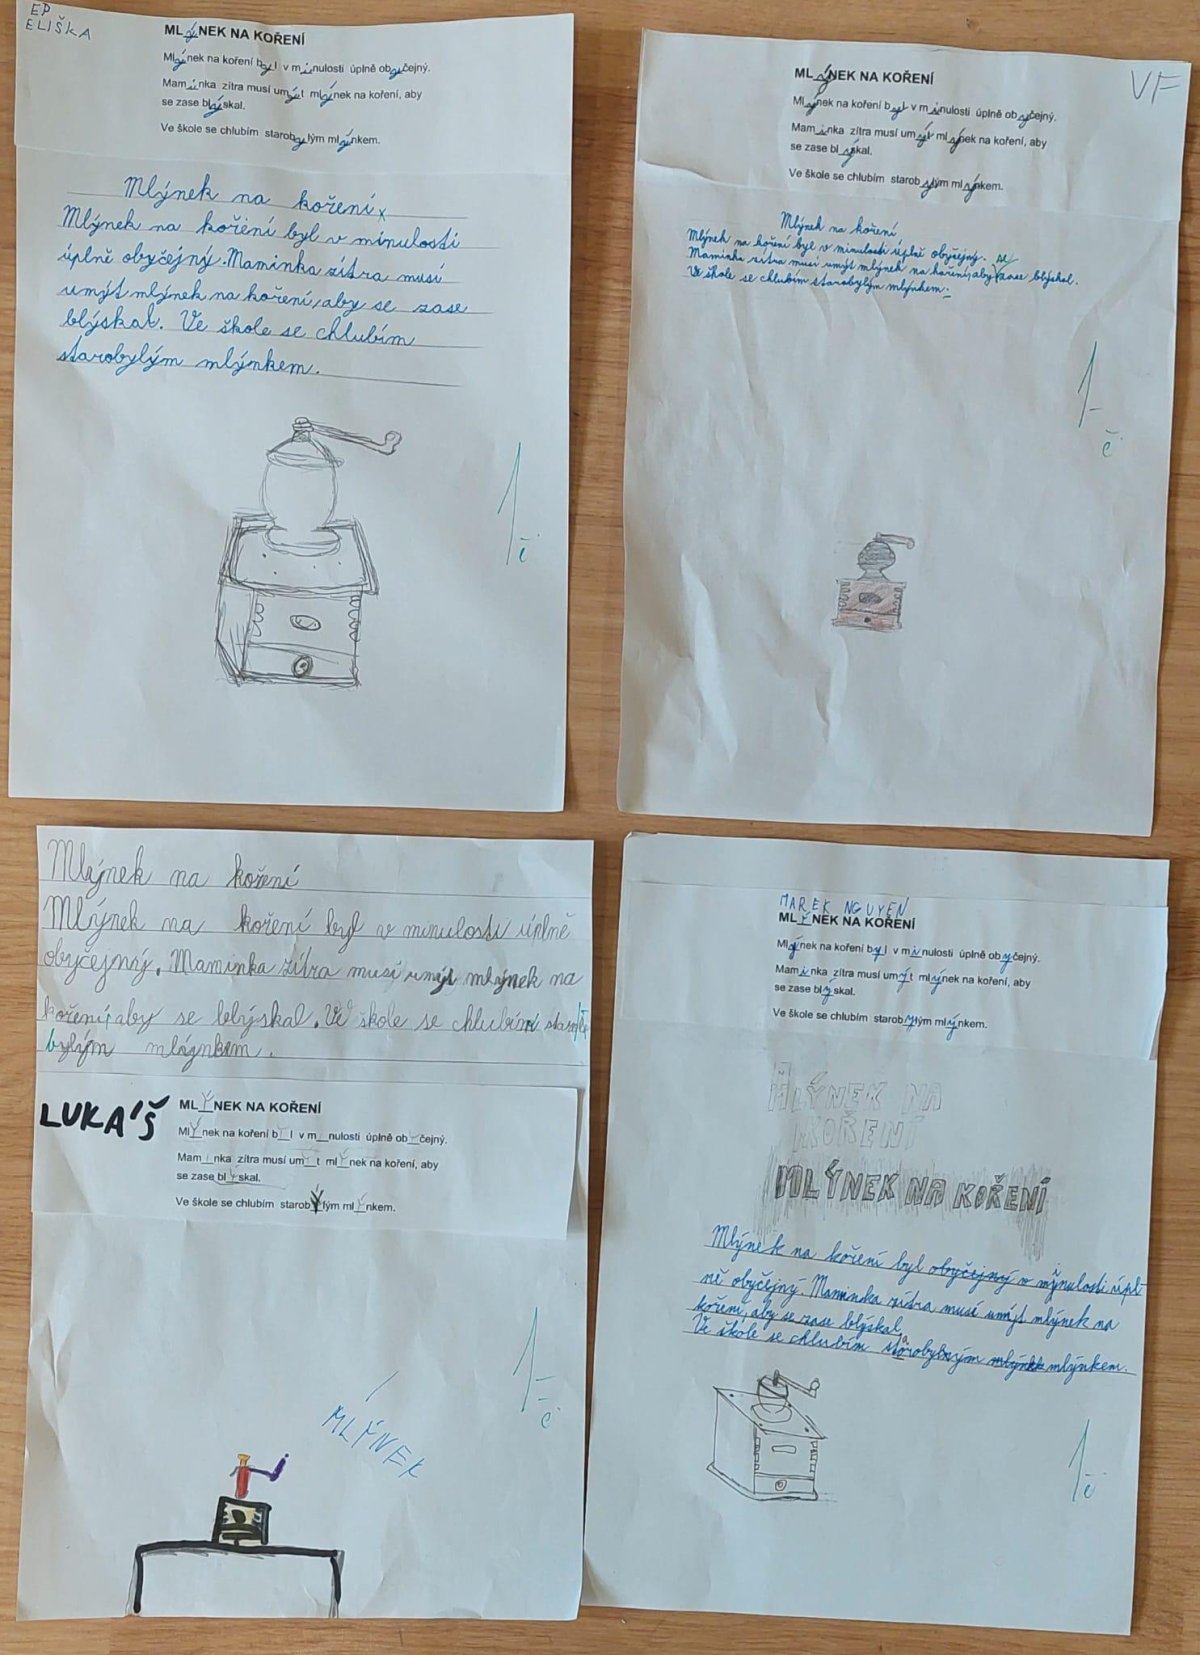 EP
ELIŠKA
MLýNEK NA KOŘENÍ
Mlýnek na koření byl v minulosti úplně obyčejný.
Maminka zítra musí umýt mlýnek na koření, aby
se zase blýskal.
Ve škole se chlubím starobylým mlýnkem.
Mlýnek na koření
Mlýnek na koření byl v minulosti
úplně obyčejný. Maminka zítra musí
umýt mlýnek na koření, aby se zase
blýskal. Ve škole se chlubím
starobylým mlýnkem.
1
č
VF
MLýNEK NA KOŘENÍ
Mlýnek na koření byl v minulosti úplně obyčejný.
Maminka zítra musí umýt mlýnek na koření, aby
se zase blýskal.
Ve škole se chlubím starobylým mlýnkem.
Mlýnek na koření
Mlýnek na koření byl v minulosti úplně obyčejný.
Maminka zítra musí umýt mlýnek na koření, aby se zase blýskal.
Ve škole se chlubím starobylým mlýnkem.
1-
č
Mlýnek na koření
Mlýnek na koření byl v minulosti úplně
obyčejný. Maminka zítra musí umýt mlýnek na
koření, aby se blýskal. Ve škole se chlubím staro
bylým mlýnkem.
LUKÁŠ
MLÝNEK NA KOŘENÍ
MlÝnek na koření b l v m__nulosti úplně ob čejný.
Mam nka zítra musí um t mlÝnek na koření, aby
se zase blÝskal.
Ve škole se chlubím starobÝlým mlÝnkem.
1-
č
MLÝNEK
MAREK NGUYEN
MLÝNEK NA KOŘENÍ
Mlýnek na koření byl v minulosti úplně obyčejný.
Maminka zítra musí umýt mlýnek na koření, aby
se zase blýskal.
Ve škole se chlubím starobylým mlýnkem.
MLÝNEK NA
KOŘENÍ
MLÝNEK NA KOŘENÍ
Mlýnek na koření byl obyčejný v minulosti úpl
ně obyčejný. Maminka zítra musí umýt mlýnek na
koření, aby se zase blýskal.
Ve škole se chlubím starobylým mlýnkem.
1
č